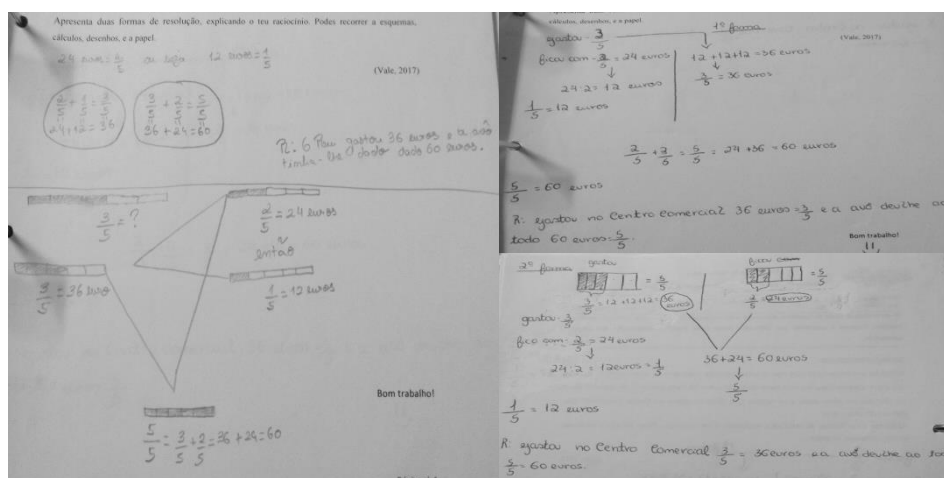 Apresenta duas formas de resolução, explicando o teu raciocínio. Podes recorrer a esquemas,
cálculos, desenhos, e a papel.
24 euros = 2/5 ou seja 12 euros = 1/5
(Vale, 2017)
2/5 + 1/5 = 3/5
24+12=36
3/5 + 2/5 = 5/5
36+24=60
R: O Rui gastou 36 euros e a avó
tinha-lhe dado dado 60 euros.
3/5 = ?
2/5 = 24 euros
então
3/5 = 36 euro
1/5 = 12 euros
Bom trabalho!
5/5 = 3/5 + 2/5 = 36 + 24 = 60
cálculos, desenhos, e a papel.
1ª forma
(Vale, 2017)
gastou - 3/5
ficou com - 2/5 = 24 euros
24:2 = 12 euros
1/5 = 12 euros
12+12+12 = 36 euros
3/5 = 36 euros
2/5 + 3/5 = 5/5 = 24 + 36 = 60 euros
5/5 = 60 euros
R: gastou no Centro Comercial 36 euros = 3/5 e a avó deu-lhe ao
todo 60 euros = 5/5.
Bom trabalho!
!!
2ª forma
gastou
= 5/5
3/5 = 12+12+12 = 36 euros
ficou
= 5/5
2/5 = 24 euros
gastou - 3/5
fico com - 2/5 = 24 euros
24:2 = 12 euros = 1/5
36+24 = 60 euros
5/5
1/5 = 12 euros
R. gastou no Centro Comercial 3/5 = 36 euros e a avó deu-lhe ao
5/5 = 60 euros.